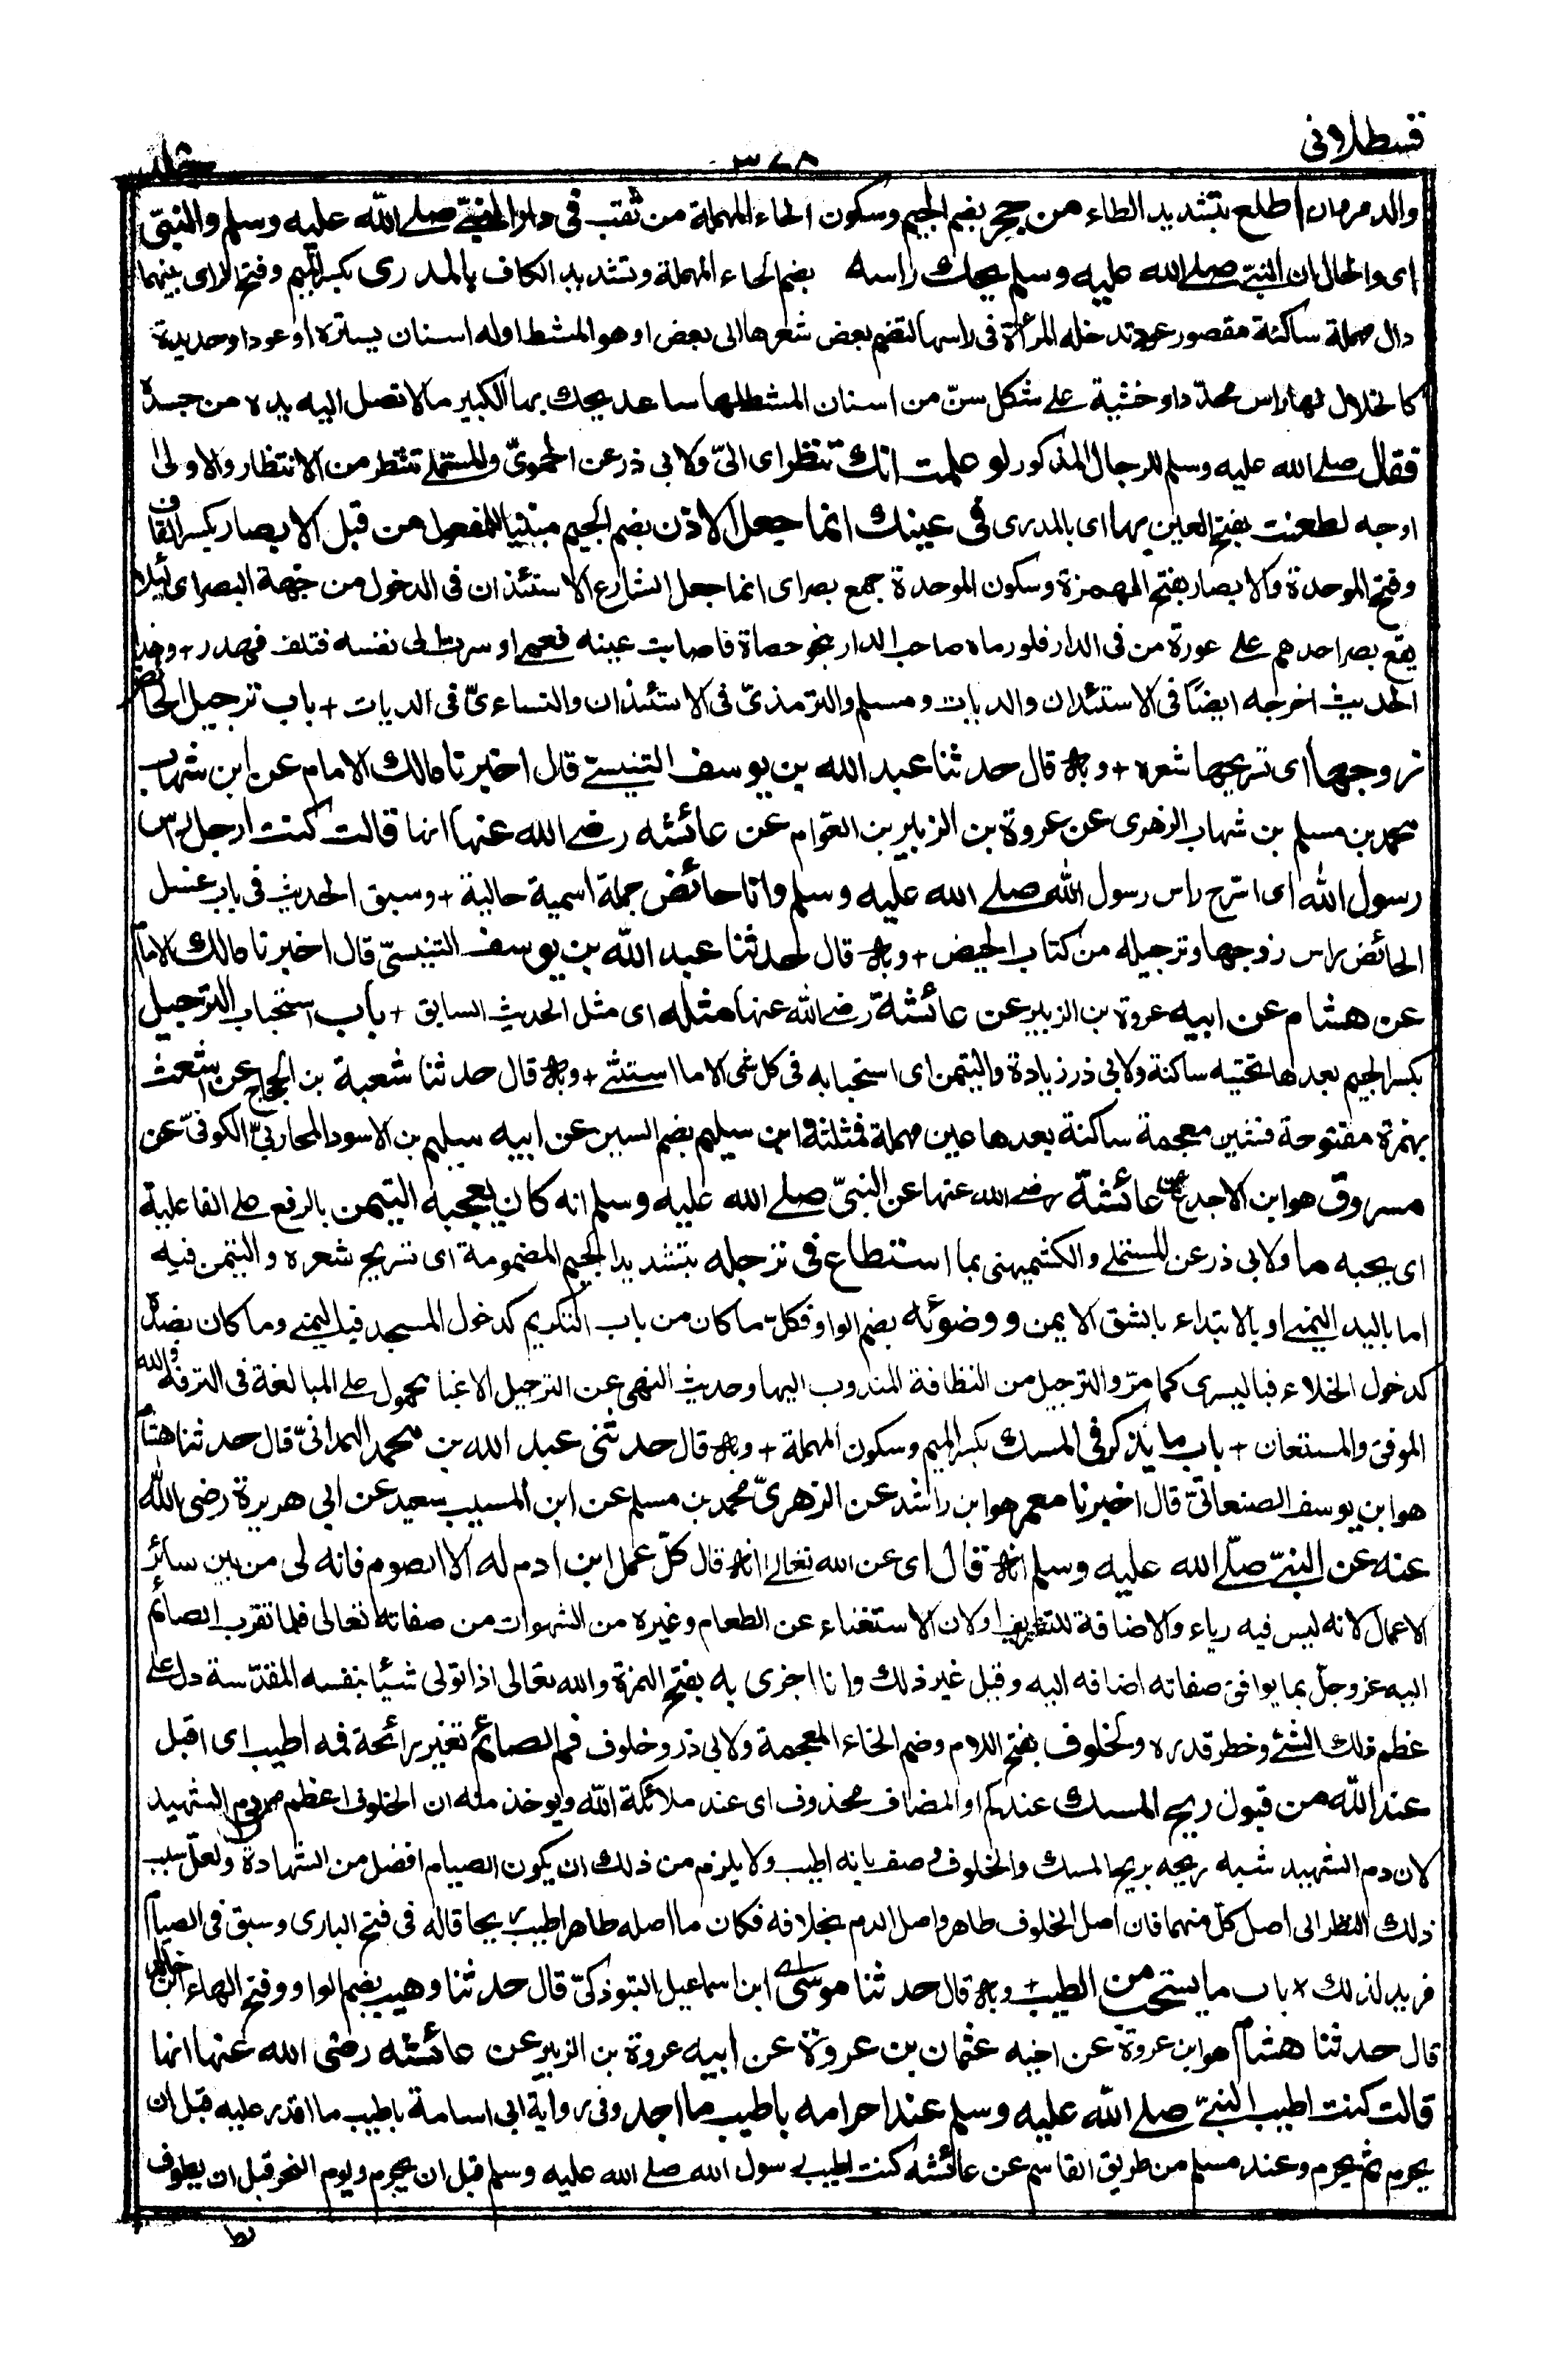 قسطلانی
۳۷۸
جلد
والد مروان اطلع بتشديد الطاء من جحر بضم الجيم وسكون الحاء المهملة من ثقب فى دار النبىّ صلى الله عليه وسلم والنبىّ
اى والحال ان النبىّ صلى الله عليه وسلم يحك راسه بضم الحاء المهملة وتشديد الكاف بالمدرى بكسر الميم وفتح الراى بينهما
دال مهملة ساكنة مقصور عود تدخله المرأة فى راسها لتضم بعض شعرها الى بعض او هو المشط او له اسنان يسترة او عود او حديدة
كالخلال لها راس محدّد او خشبة على شكل سنّ من اسنان المشط لها ساعد يحك بها الكبير مالا تصل اليه يده من جسده
فقال صلى الله عليه وسلم للرجال المذكور لو علمت انك تنظر اى الىّ ولابى ذر عن الحموىّ والمستملى تنتظر من الانتظار والاولى
اوجه لطعنت بفتح العين بها اى بالمدرى فى عينك انما جعل الاذن بضم الجيم مبنيا للمفعول من قبل الابصار بكسر القاف
وفتح الموحدة والابصار بفتح الهمزة وسكون الموحدة جمع بصر اى انما جعل الشارع الاستئذان فى الدخول من جهة البصر اى لئلا
يقع بصر احدهم على عورة من فى الدار فلو رماه صاحب الدار بنحو حصاة فاصابت عينه فعمى او سرت الى نفسه فتلف فهدر + وهذا
الحديث اخرجه ايضًا فى الاستئذان والديات ومسلم والترمذىّ فى الاستئذان والنساءىّ فى الديات + باب ترجيل الحائض
زوجها اى تسريحها شعره + وبه قال حدثنا عبد الله بن يوسف التنيسى قال اخبرنا مالك الامام عن ابن شهاب
محمد بن مسلم بن شهاب الزهرى عن عروة بن الزبير بن العوّام عن عائشه رضى الله عنها انها قالت كنت ارجل راس
رسول الله اى اسّرح راس رسول الله صلى الله عليه وسلم وانا حائض جملة اسمية حالية + وسبق الحديث فى باب غسل
الحائض راس زوجها وترجيله من كتاب الحيض + وبه قال حدثنا عبد الله بن يوسف التنيسىّ قال اخبرنا مالك الامام
عن هشام عن ابيه عروة بن الزبير عن عائشة رضى الله عنها مثله اى مثل الحديث السابق + باب استحباب الترجيل
بكسر الجيم بعدها تحتيه ساكنة ولابى ذر زيادة والتيمن اى استحبابه فى كل شى الا ما استثنى + وبه قال حدثنا شعبة بن الحجاج عن اشعث
بهمزة مفتوحة فشين معجمة ساكنة بعدها عين مهملة فمثلثة ابن سليم بضم السين عن ابيه سليم بن الاسود المحاربىّ الكوفىّ عن
مسروق هو ابن الاجدع عن عائشة رضى الله عنها عن النبىّ صلى الله عليه وسلم انه كان يعجبه التيمن بالرفع على الفاعلية
اى يحبه ما ولابى ذر عن المستملى والكشميهنى بما استطاع فى ترجله بتشديد الجيم المضمومة اى تسريح شعره والتيمن فيه
اما باليد اليمنى او بالابتداء بالشق الايمن ووضوئه بضم الواو فكلّ ما كان من باب التكريم كدخول المسجد فباليمنى وما كان بضده
كدخول الخلاء فباليسرى كما مرّ والترجيل من النظافة المندوب اليها وحديث النهى عن الترجيل الاغبا محمول على المبالغة فى الترفه والله
الموفق والمستعان + باب ما يذكر فى المسك بكسر الميم وسكون المهملة + وبه قال حدثنى عبد الله بن محمد الهمدانىّ قال حدثنا هشام
هو ابن يوسف الصنعانىّ قال اخبرنا معمر هو ابن راشد عن الزهرىّ محمد بن مسلم عن ابن المسيب سعيد عن ابى هريرة رضى الله
عنه عن النبىّ صلّى الله عليه وسلم انه قال اى عن الله تعالى انه قال كلّ عمل ابن ادم له الا الصوم فانه لى من بين سائر
الاعمال لانه ليس فيه رياء والاضافة للتشريف او لان الاستغناء عن الطعام وغيره من الشهوات من صفاته تعالى فلما تقرب الصائم
اليه عز وجلّ بما يوافق صفاته اضافه اليه وقيل غير ذلك وانا اجزى به بفتح الهمزة والله تعالى اذا تولى شيئا بنفسه المقدّسة دل على
عظم ذلك الشئ وخطر قدره ولخلوف بفتح اللام وضم الخاء المعجمة ولابى ذر وخلوف فم الصائم تغير رائحة فمه اطيب اى اقبل
عند الله من قبول ريح المسك عندكم او المضاف محذوف اى عند ملائكة الله ويوخذ منه ان الخلوف اعظم من دم الشهيد
لان دم الشهيد شبه ريحه بريح المسك والخلوف وصف بانه اطيب ولا يلزم من ذلك ان يكون الصيام افضل من الشهادة ولعلّ سبب
ذلك النظر الى اصل كلّ منهما فان اصل الخلوف طاهر واصل الدم بخلافه فكان ما اصله طاهر اطيب ريحا قاله فى فتح البارى وسبق فى الصيام
مزيد لذلك × باب ما يستحب من الطيب + وبه قال حدثنا موسى ابن اسماعيل التبوذكىّ قال حدثنا وهيب بضم الواو وفتح الهاء ابن خالد
قال حدثنا هشام هو ابن عروة عن اخيه عثمان بن عروة عن ابيه عروة بن الزبير عن عائشه رضى الله عنها انها
قالت كنت اطيب النبىّ صلى الله عليه وسلم عند احرامه باطيب ما اجد وفى رواية ابى اسامة باطيب ما اقدر عليه قبل ان
يحرم ثم يحرم وعند مسلم من طريق القاسم عن عائشه كنت اطيب رسول الله صلى الله عليه وسلم قبل ان يحرم ويوم النحر قبل ان يطوف